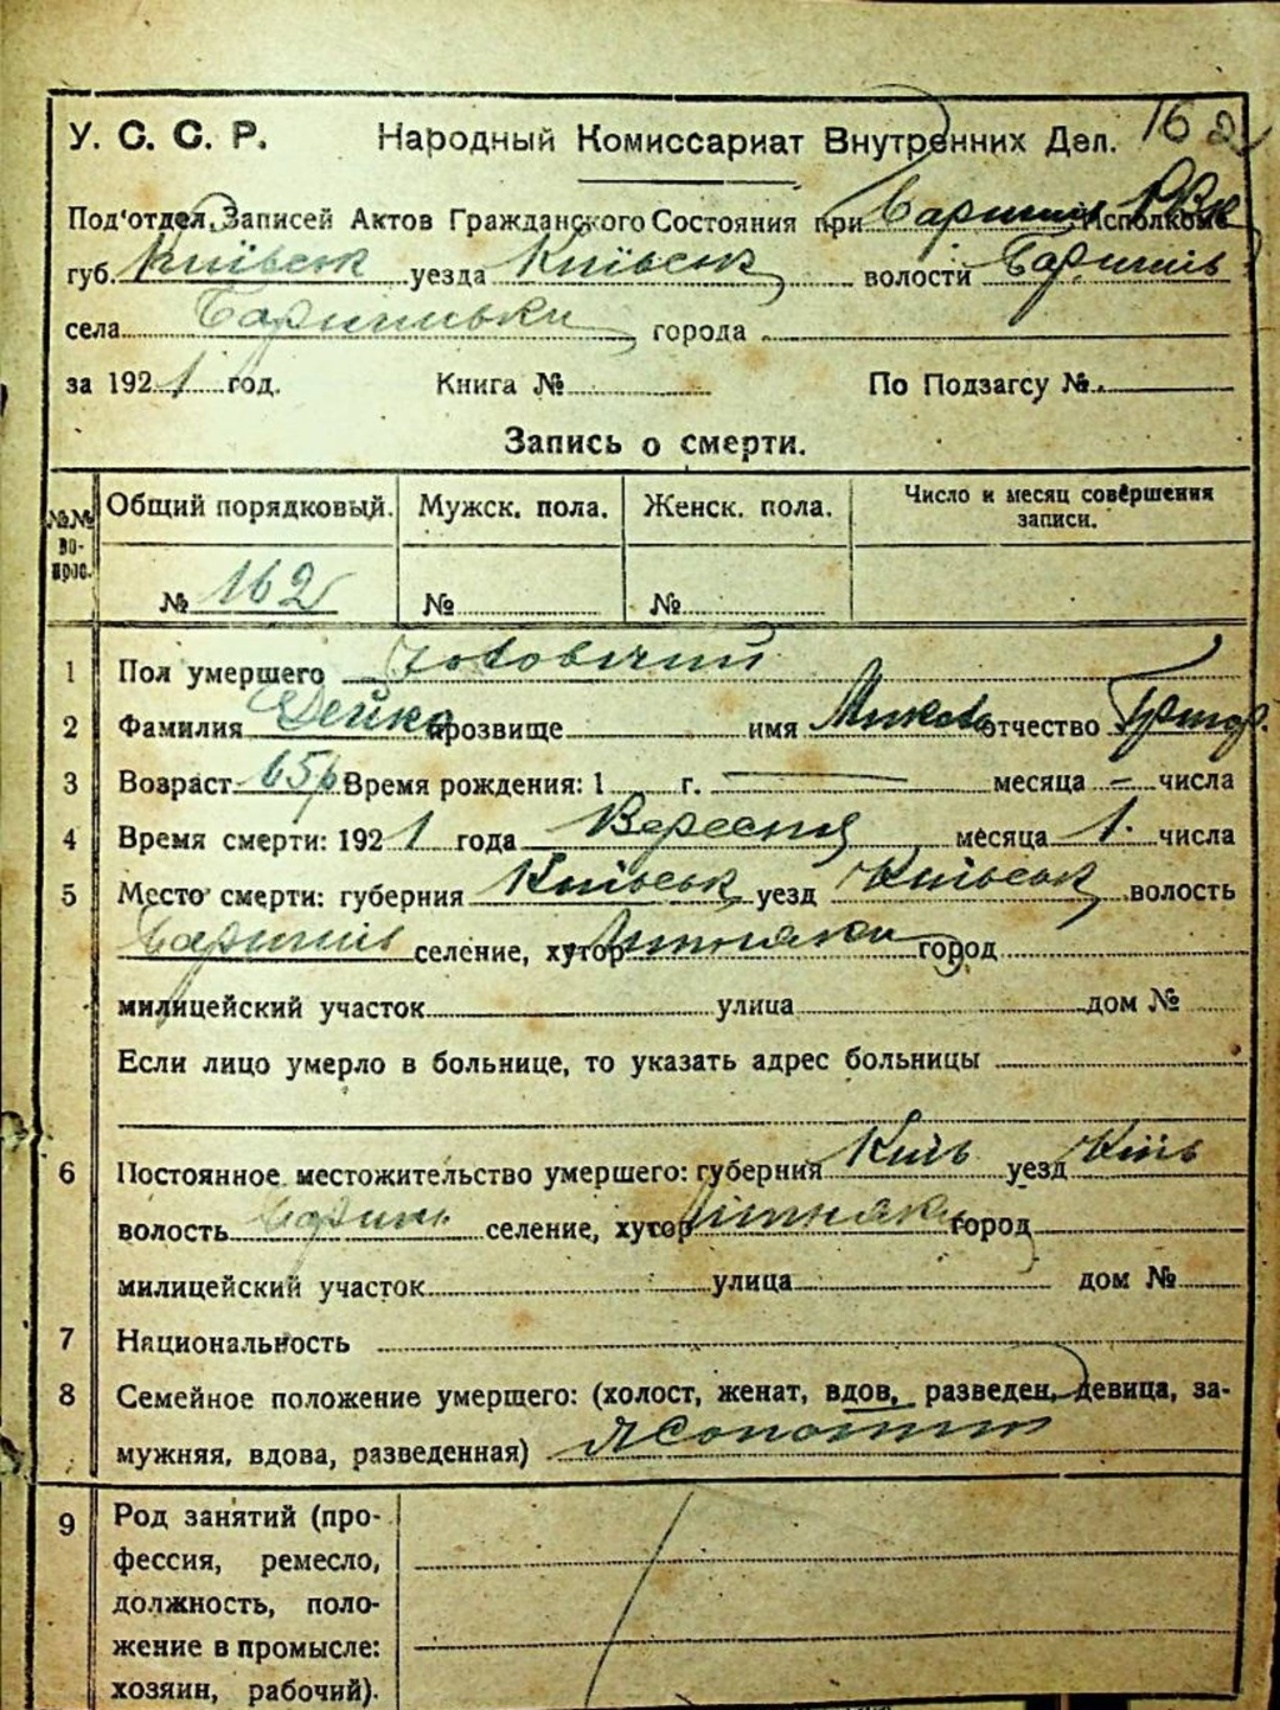 У. С. С. Р. Народный Комиссариат Внутренних Дел. 162
Под'отдел Записей Актов Гражданского Состояния при Баришів РВК Исполкоме
губ. Київськ уезда Київськ волости Баришів
села Баришівки города
за 1921 год. Книга № По Подзагсу №
Запись о смерти.
№№ вопрос. Общий порядковый. Мужск. пола. Женск. пола. Число и месяц совершения записи.
№ 162 № №
1 Пол умершего Чоловічий
2 Фамилия Дейко прозвище имя Микола отчество Григор.
3 Возраст 65р Время рождения: 1 г. — месяца — числа
4 Время смерти: 1921 года Вересня месяца 1. числа
5 Место смерти: губерния Київськ уезд Київськ волость
Баришів селение, хутор Литняки город
милицейский участок улица дом №
Если лицо умерло в больнице, то указать адрес больницы
6 Постоянное местожительство умершего: губерния Київ уезд Київ
волость Бариш селение, хутор Літняки город
милицейский участок улица дом №
7 Национальность
8 Семейное положение умершего: (холост, женат, вдов, разведен, девица, за-
мужняя, вдова, разведенная)
9 Род занятий (про-
фессия, ремесло,
должность, поло-
жение в промысле:
хозяин, рабочий).